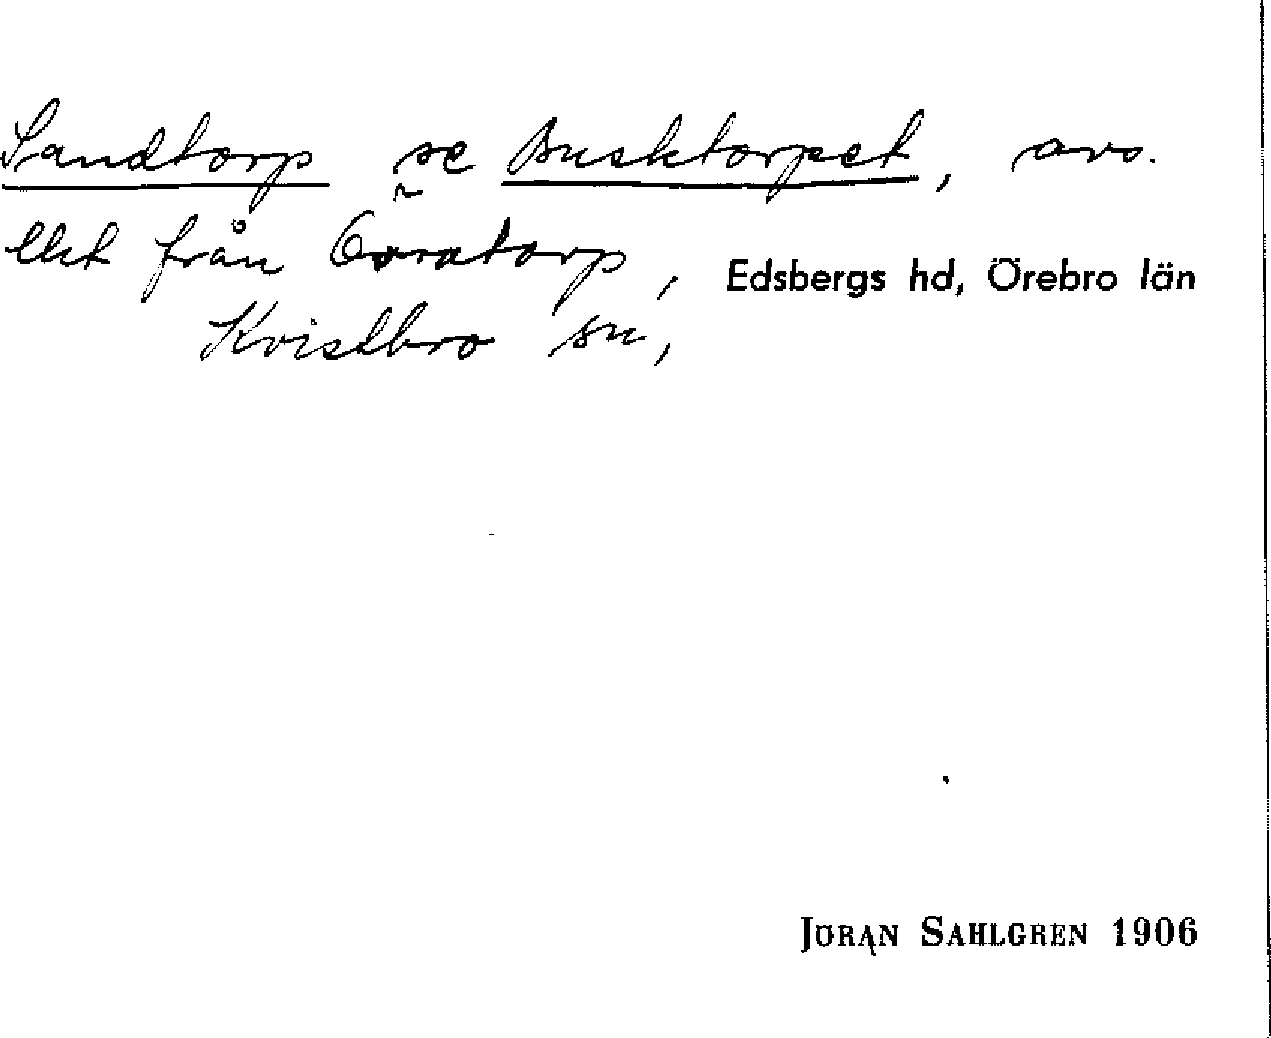 Sandtorp se Busktorpet, avs.
llet från Övratorp, Edsbergs hd, Örebro län
Kvistbro sn,
JÖRAN SAHLGREN 1906